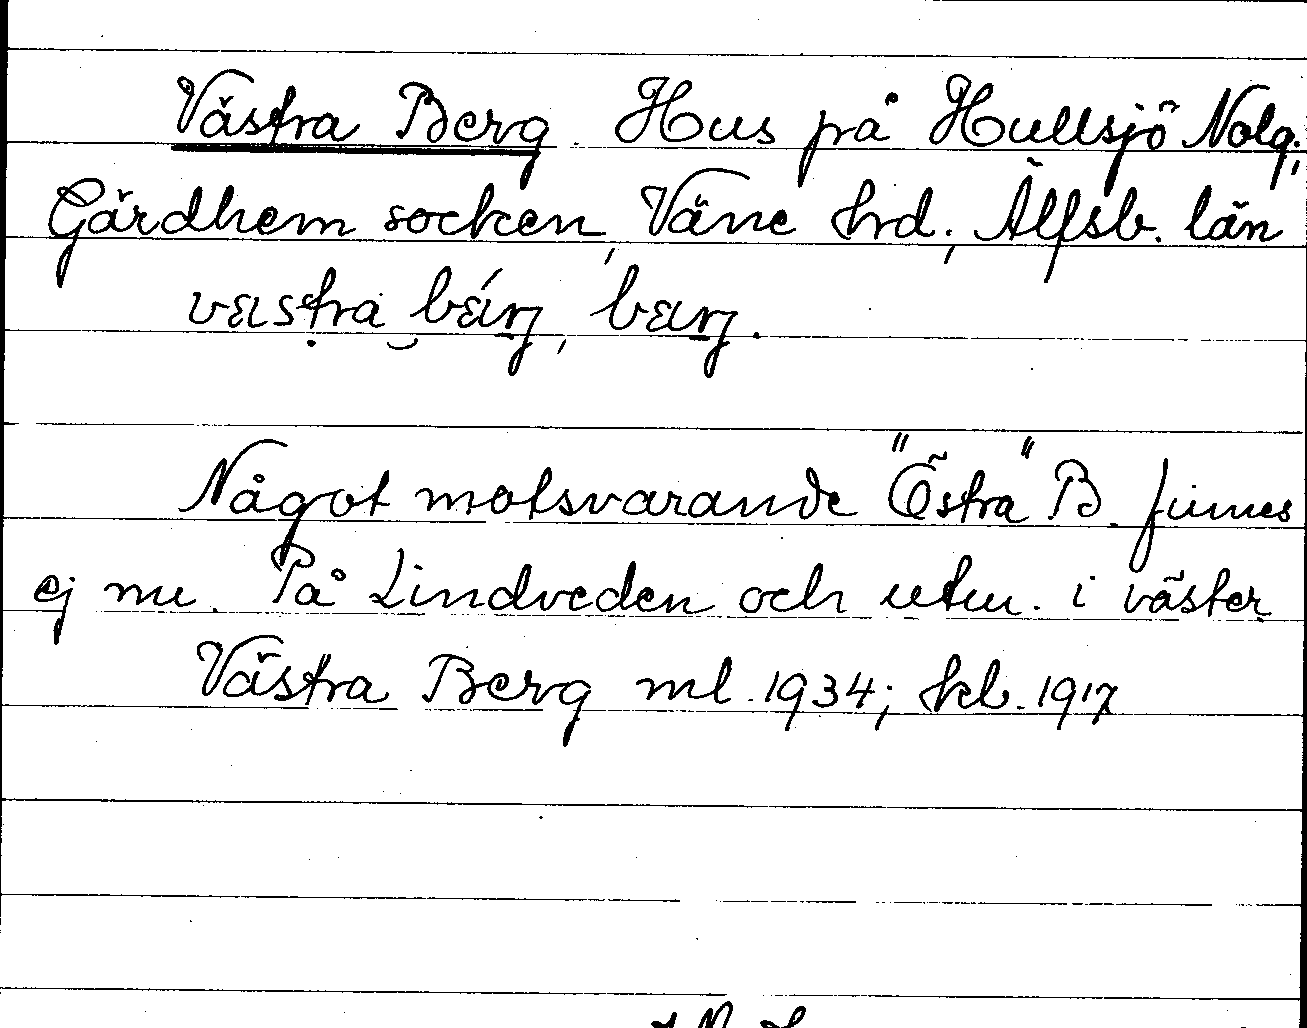 Västra Berg. Hus på Hullsjö Nolg.,
Gärdhem socken, Väne hrd., Älfsb. län
Något motsvarande "Östra" B. finnes
ej nu. På Lindveden och utm. i väster
Västra Berg ml. 1934; kb. 1917